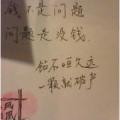 钱不是问题
问题是没钱。
钻石恒久远
一颗就破产